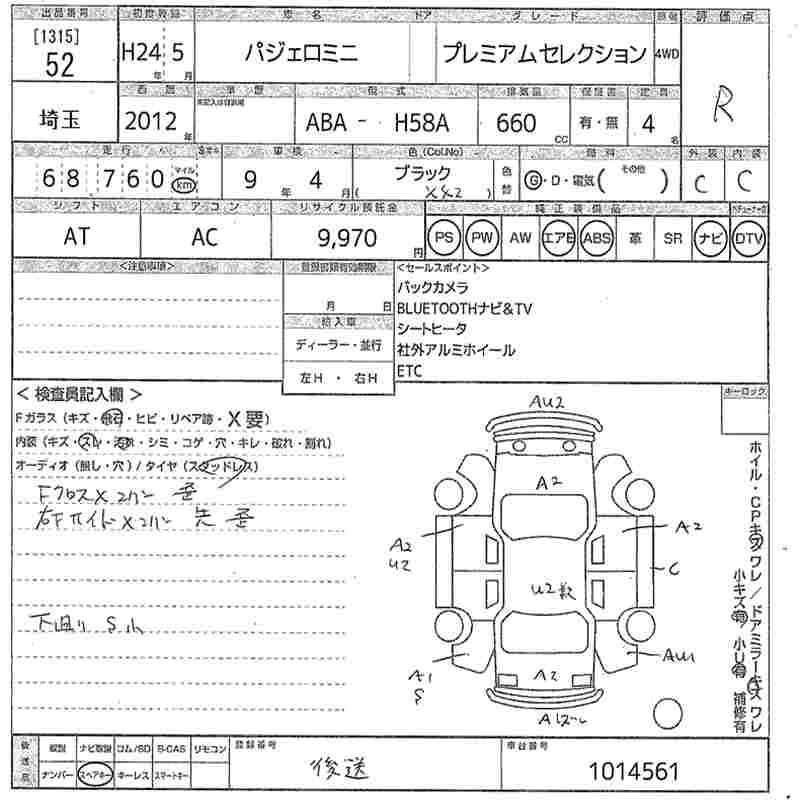 出品番号 初度登録 車名 ドア グレード 駆動 評価点
[1315]
52
H24 5 パジェロミニ プレミアムセレクション 4WD R
年 月
西暦 車歴 型式 排気量 保証書 定員
未記入は自家用
埼玉 2012年 ABA - H58A 660 CC 有・無 4名
走行 車検 色(Col.No) 燃料 外装 内装
68,760 マイル km 9年 4月 ブラック ( X42 ) 色替 G・D・電気( その他 ) C C
シフト エアコン リサイクル預託金 純正装備品
AT AC 9,970円 PS PW AW エアB ABS 革 SR ナビ DTV
<注意事項> 登録書類有効期限 <セールスポイント>
月 日
バックカメラ
BLUETOOTHナビ&TV
輸入車
シートヒータ
ディーラー・並行
社外アルミホイール
左H ・ 右H
ETC
キーロック
< 検査員記入欄 >
Fガラス (キズ・飛石・ヒビ・リペア跡・X要)
内装 (キズ・スレ・汚れ・シミ・コゲ・穴・キレ・破れ・割れ)
オーディオ (無し・穴) / タイヤ (スタッドレス)
FクロスXコアサポ 歪
右FサイドXコアサポ 先 歪
下廻り S小
AU2
A2
A2
U2
A2
C
U2数
A1
S
AU1
A2
ホイル・CPキズワレ / ドアミラーキズワレ
小キズ有 / 小U有 補修有
後送品 取説 ナビ取説 コム/SD B-CAS リモコン 登録番号 車台番号
ナンバー スペアキー キーレス スマートキー 後送 1014561